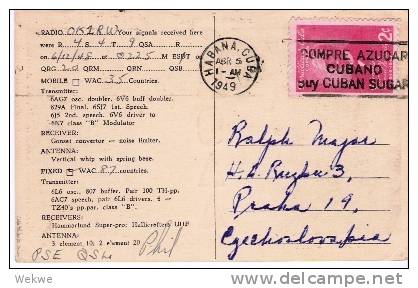 RADIO OK1RW Your signals received here
were R 4 S 4 T 9 QSA R
on 6/12/48 at 0225 M ESPT on
QRG 28 QRM QRN QSB
MOBILE WAC 35 Countries.
Transmitter:
6AG7 osc. doubler. 6V6 buff doubler.
829A Final. 6SJ7 1st. Speech.
6J5 2nd. speech. 6V6 driver to
6N7 class "B" Modulator
RECEIVER:
Gonset convertor — noise limiter.
ANTENNA:
Vertical whip with spring base.
FIXED WAC 87 countries.
Transmitter:
6L6 osc. 807 buffer. Pair 100 TH-pp.
6AC7 speech, pair 6L6 drivers. 4
TZ40's pp.par. class "B".
RECEIVERS:
Hammarlund Super-pro: Hallicrafters
ANTENNA:
3 element 10; 2 element 20
PSE QSL Phil
HABANA, CUBA
ABR 5
1-AM
1949
2c
COMPRE AZUCAR
CUBANO
BUY CUBAN SUGAR
Ralph Major
Praha 19,
Czechoslovakia
© Wekwe
delcampe.net